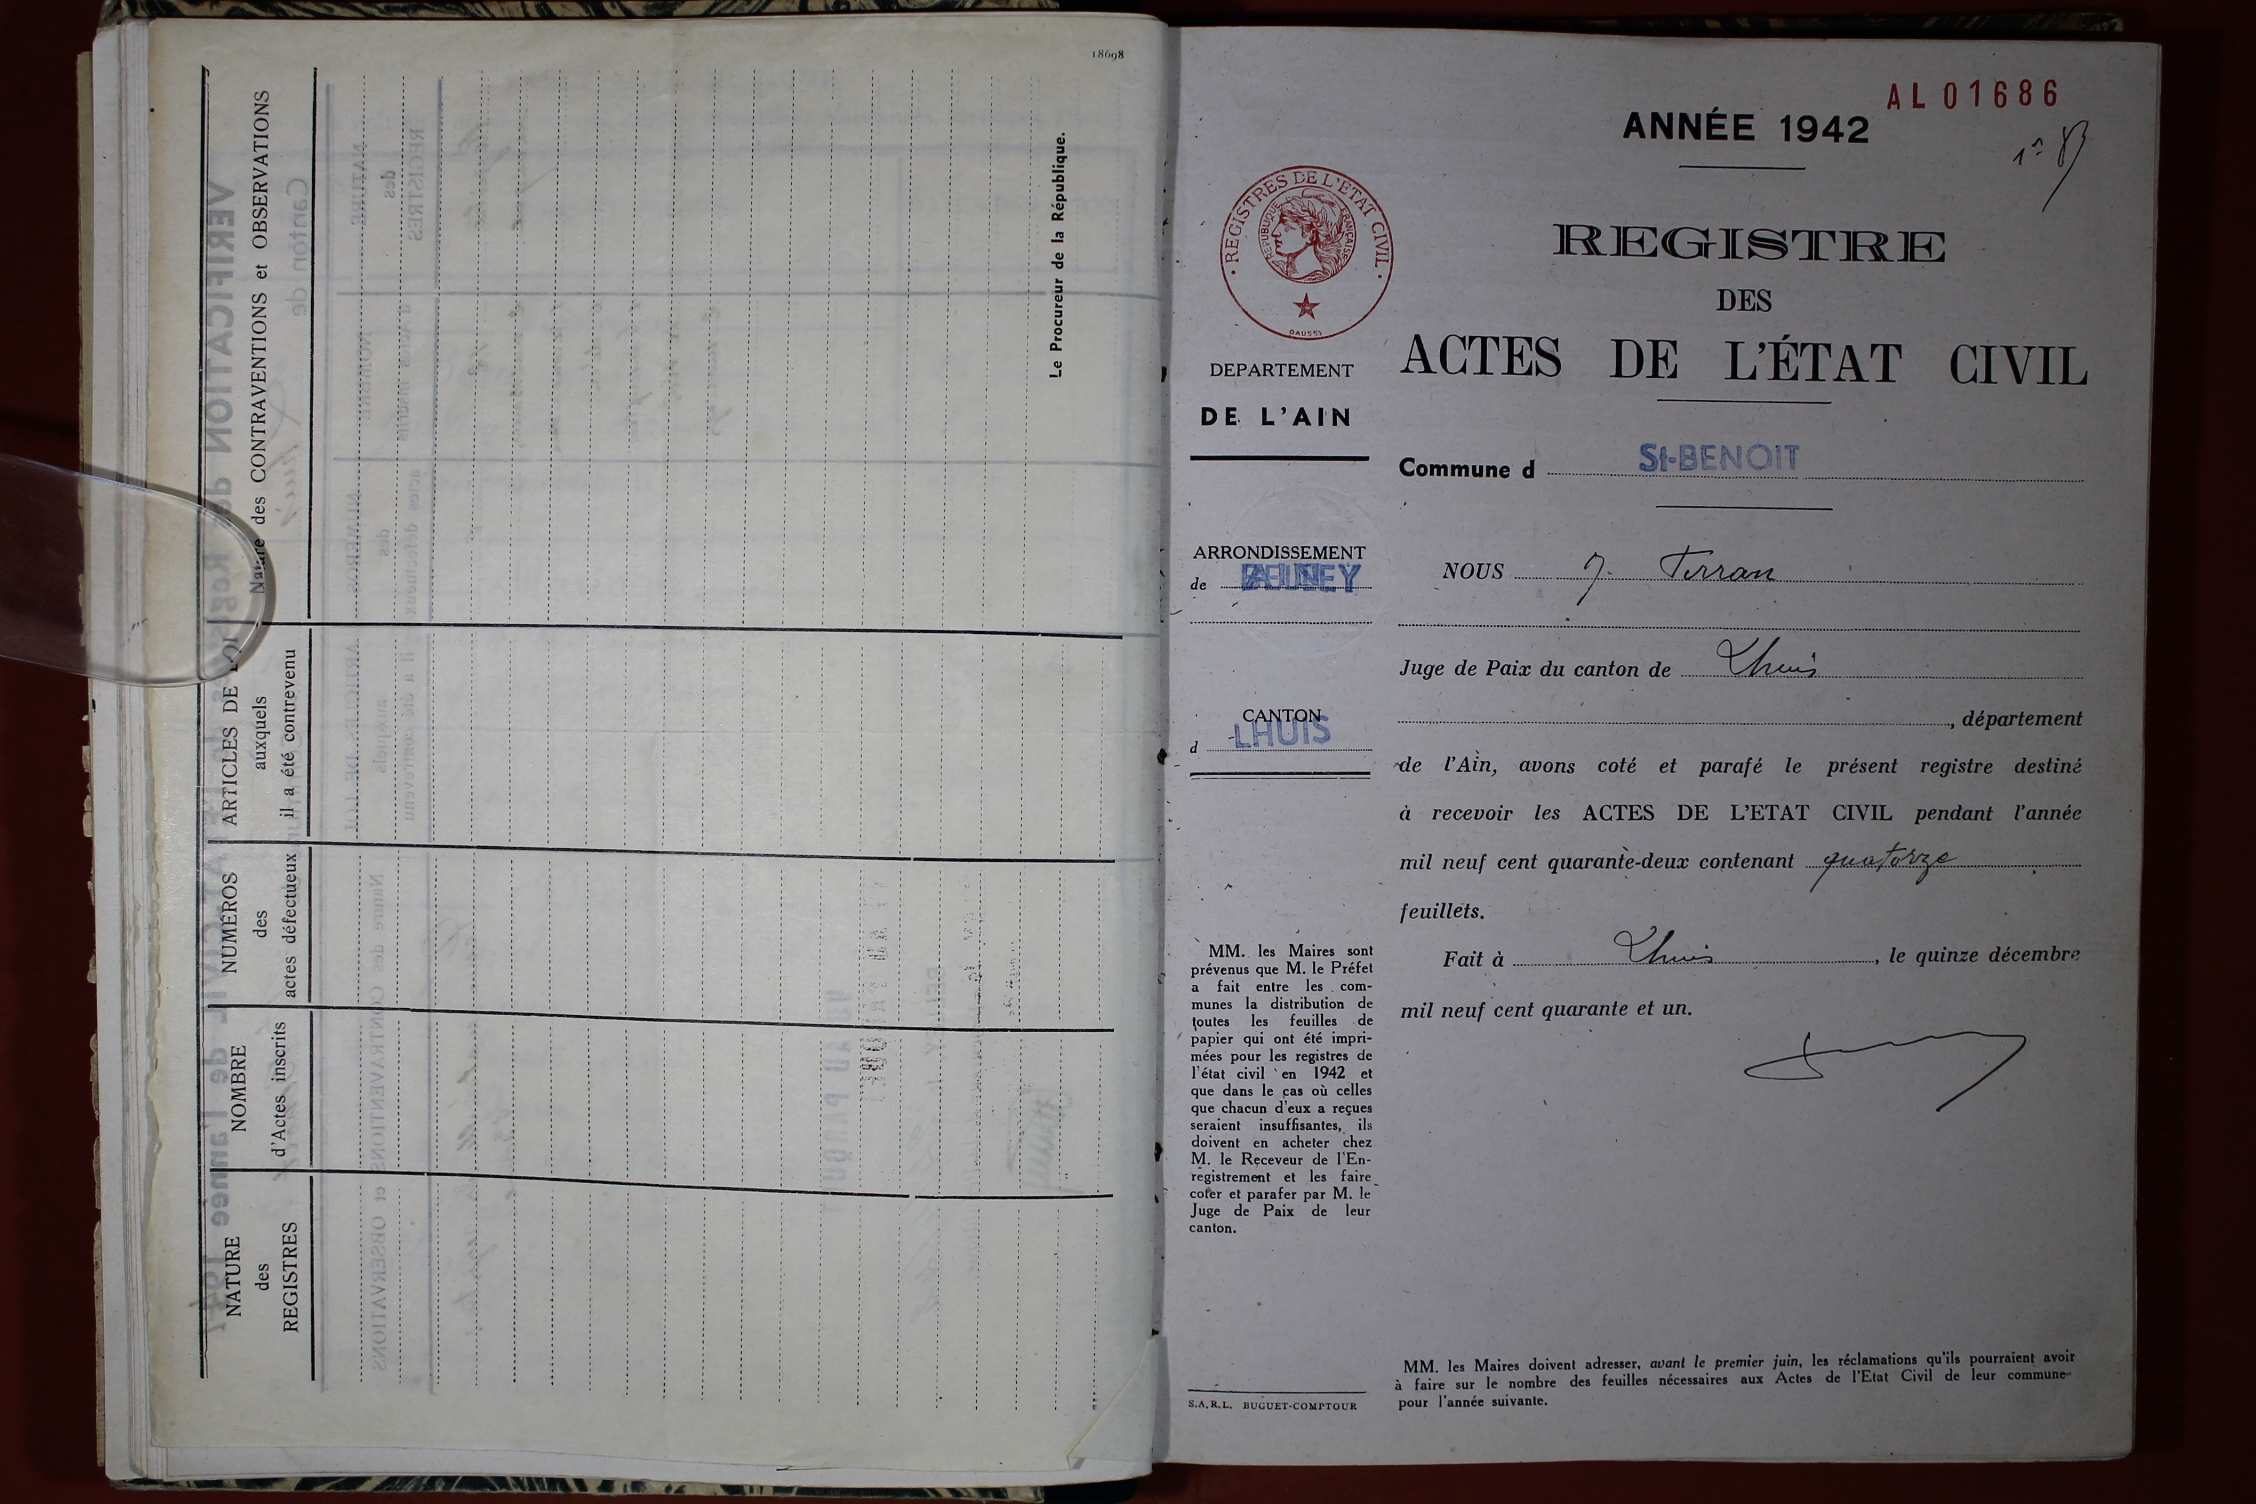 18698
Nature des CONTRAVENTIONS et OBSERVATIONS
ARTICLES DE LOI
auxquels
il a été contrevenu
NUMÉROS
des
actes défectueux
NOMBRE
d'Actes inscrits
NATURE
des
REGISTRES
Le Procureur de la République.
AL 01686
ANNÉE 1942
REGISTRE
DES
ACTES DE L'ÉTAT CIVIL
· REGISTRES DE L'ETAT CIVIL ·
REPUBLIQUE FRANÇAISE
DEPARTEMENT
DE L'AIN
Commune d St-BENOIT
ARRONDISSEMENT
de BELLEY
CANTON
d LHUIS
NOUS J. Ferran
Juge de Paix du canton de Lhuis
, département
de l'Ain, avons coté et parafé le présent registre destiné
à recevoir les ACTES DE L'ETAT CIVIL pendant l'année
mil neuf cent quarante-deux contenant quatorze
feuillets.
Fait à Lhuis, le quinze décembre
mil neuf cent quarante et un.
MM. les Maires sont
prévenus que M. le Préfet
a fait entre les com-
munes la distribution de
toutes les feuilles de
papier qui ont été impri-
mées pour les registres de
l'état civil en 1942 et
que dans le cas où celles
que chacun d'eux a reçues
seraient insuffisantes, ils
doivent en acheter chez
M. le Receveur de l'En-
registrement et les faire
coter et parafer par M. le
Juge de Paix de leur
canton.
S.A.R.L. BUGUET-COMPTOUR
MM. les Maires doivent adresser, avant le premier juin, les réclamations qu'ils pourraient avoir
à faire sur le nombre des feuilles nécessaires aux Actes de l'Etat Civil de leur commune
pour l'année suivante.